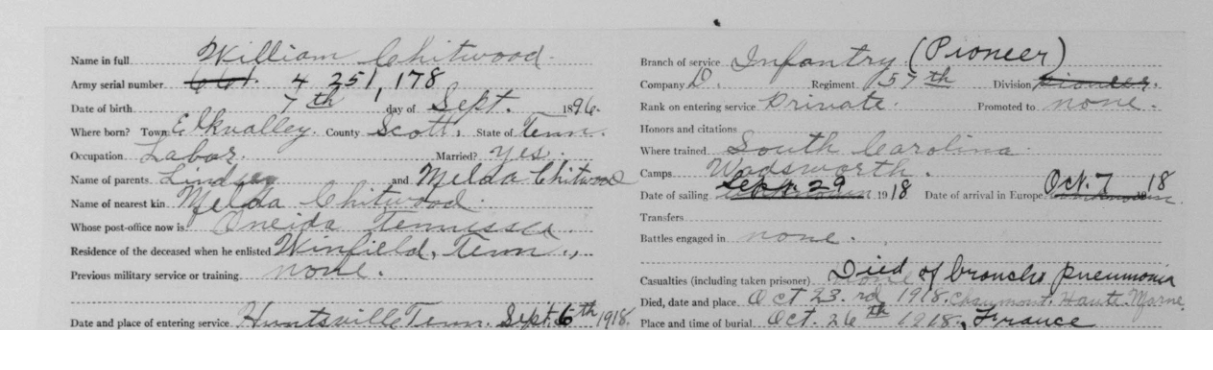 Name in full William Chitwood.
Army serial number 4,351,178
Date of birth 7th day of Sept. 1896.
Where born? Town Elkvalley. County Scott. State of Tenn.
Occupation Labor. Married? yes.
Name of parents Lindsay and Melda Chitwood
Name of nearest kin Melda Chitwood.
Whose post-office now is Oneida Tennessee
Residence of the deceased when he enlisted Winfield, Tenn.,
Previous military service or training none.
Date and place of entering service Huntsville Tenn. Sept. 6th 1918.
Branch of service Infantry (Pioneer)
Company D. Regiment 57th Division Pioneer.
Rank on entering service Private. Promoted to none.
Honors and citations
Where trained South Carolina.
Camps Wadsworth.
Date of sailing Sept. 29 1918 Date of arrival in Europe Oct. 7 18
Transfers
Battles engaged in none.
Casualties (including taken prisoner) Died of broncho pneumonia
Died, date and place Oct 23.rd 1918. Chaumont. Haute Marne.
Place and time of burial Oct. 26th 1918., France